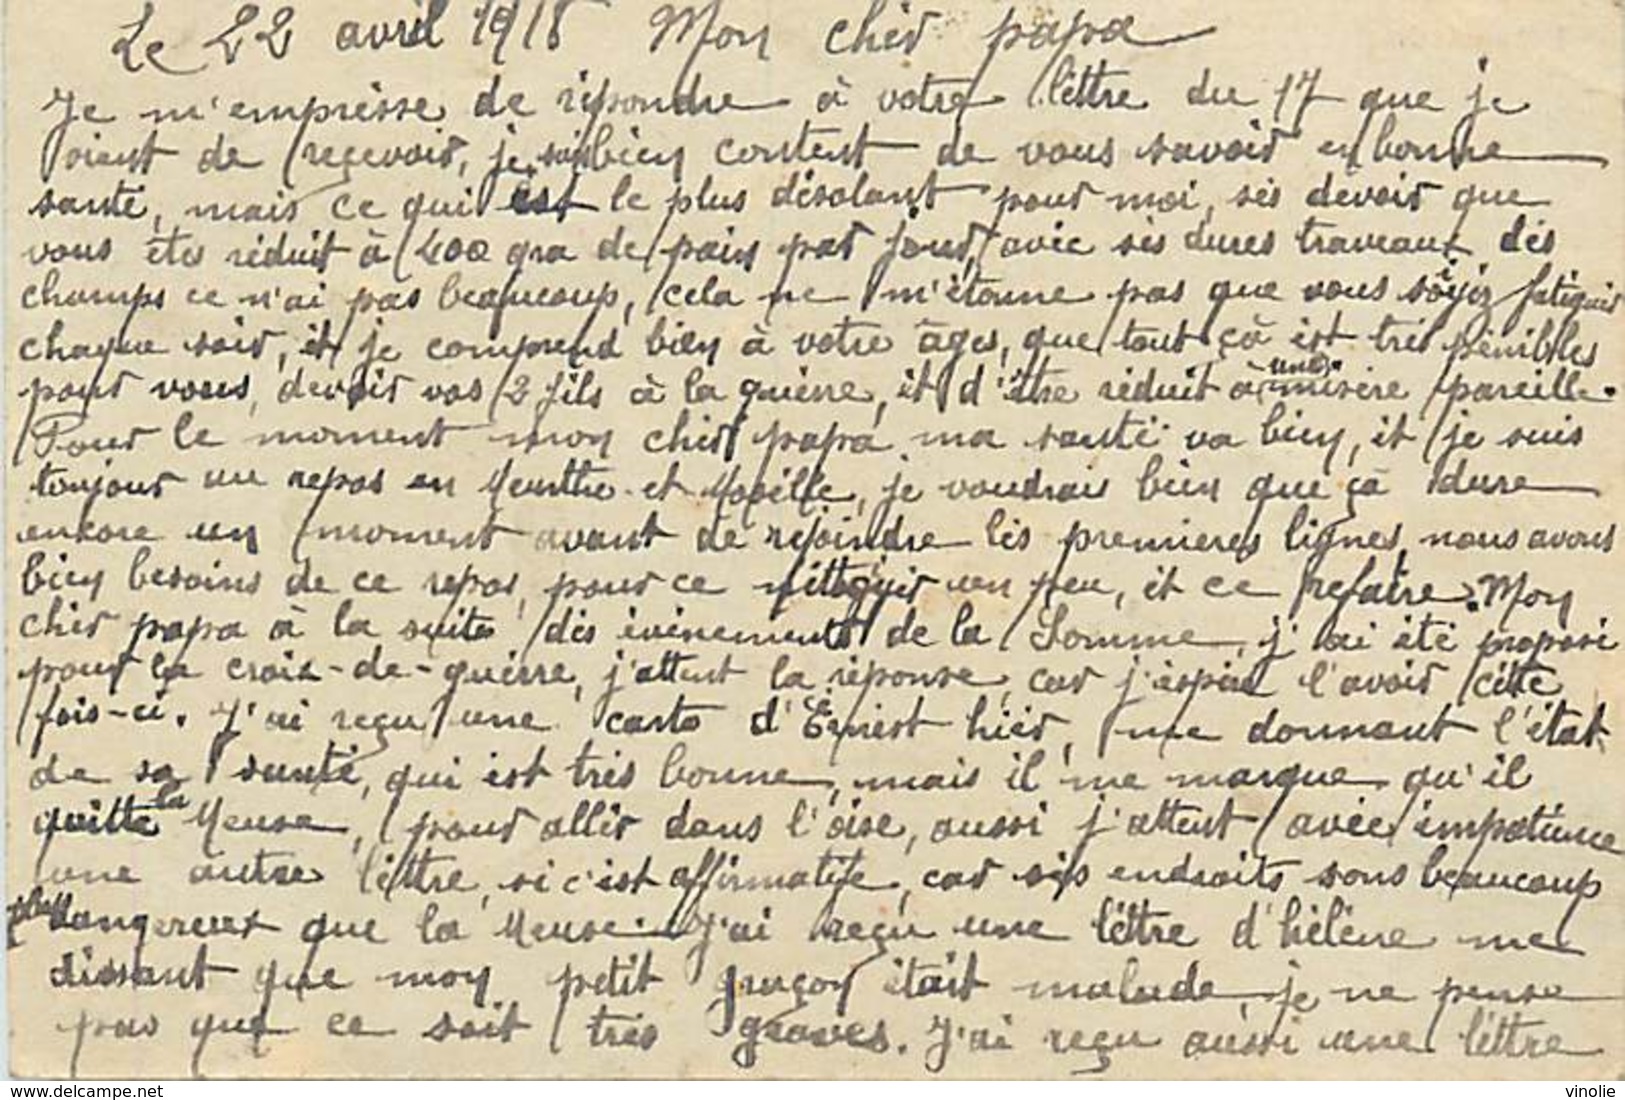 Le 22 avril 1918 Mon cher papa
Je m'empresse de répondre à votre lettre du 17 que je
vient de reçevoir, je suis bien content de vous savoir en bonne
santé, mais ce qui est le plus désolant pour moi, ses devoir que
vous êtes réduit à 400 gra de pain par jour, avec ses dures traveaux des
champs ce n'ai pas beaucoup, cela ne m'étonne pas que vous soyiez fatiguér
chaque soir, et je comprend bien à votre âges, que tout çà est très pénibles
pour vous, devoir vos 2 fils à la guerre, et d'être réduit à une misère pareille.
Pour le moment mon cher papa ma santé va bien, et je suis
toujour au repos en Meurthe-et Moselle, je voudrais bien que çà dure
encore un moment avant de rejoindre les premieres lignes, nous avons
bien besoins de ce repos, pour ce nettoyer un peu, et ce refaire. Mon
cher papa à la suite des événements de la Somme, j'ai été proposé
pour la croix-de-guerre, j'attent la réponse, car j'espère l'avoir cette
fois-ci. J'ai reçu une carte d'Ernest hier, me donnant l'état
de sa santé, qui est très bonne, mais il me marque qu'il
quitte la Meuse, pour aller dans l'oise, aussi j'attent avec impatience
une autre lettre, si c'est affirmatife, car ses endroits sons beaucoup
plus dangereux que la Meuse. J'ai reçu une lettre d'hélène me
dissant que mon petit graçon était malade, je ne pense
pas que ce soit très graves. J'ai reçu aussi une lettre
vinolie